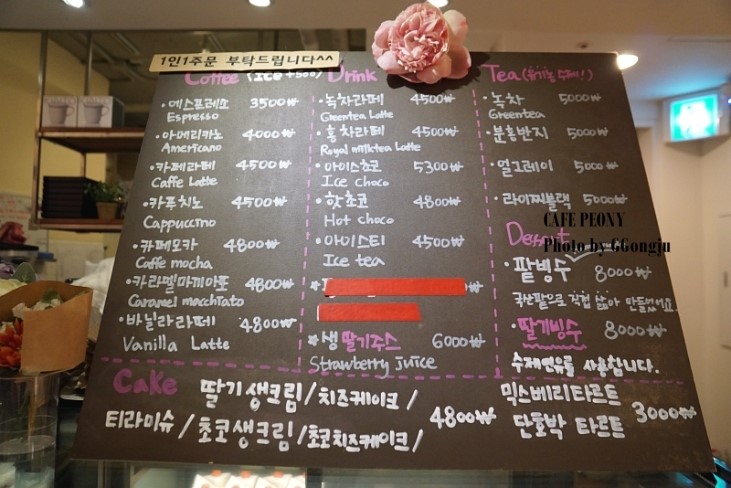 1인1주문 부탁드립니다^^
Coffee (Ice +500)
·에스프레소 3500₩
Espresso
·아메리카노 4000₩
Americano
·카페라떼 4500₩
Caffe Latte
·카푸치노 4500₩
Cappuccino
·카페모카 4800₩
Caffe mocha
·카라멜마끼아또 4800₩
Caramel macchiato
·바닐라라떼 4800₩
Vanilla Latte
Drink
·녹차라떼 4500₩
Greentea Latte
·홍차라떼 4500₩
Royal milktea Latte
·아이스초코 5300₩
Ice choco
·핫초코 4800₩
Hot choco
·아이스티 4500₩
Ice tea
*생딸기주스 6000₩
Strawberry juice
Tea
·녹차 5000₩
Greentea
·분홍반지 5000₩
·얼그레이 5000₩
·라이찌블랙 5000₩
Dessert
·팥빙수 8000₩
국산팥으로 직접 삶아 만들었어요.
·딸기빙수 8000₩
수제연유를 사용합니다.
Cake
딸기생크림/치즈케이크/
티라미슈/초코생크림/초코치즈케이크/ 4800₩
믹스베리타르트
단호박 타르트 3000₩
CAFE PEONY
Photo by GGongju